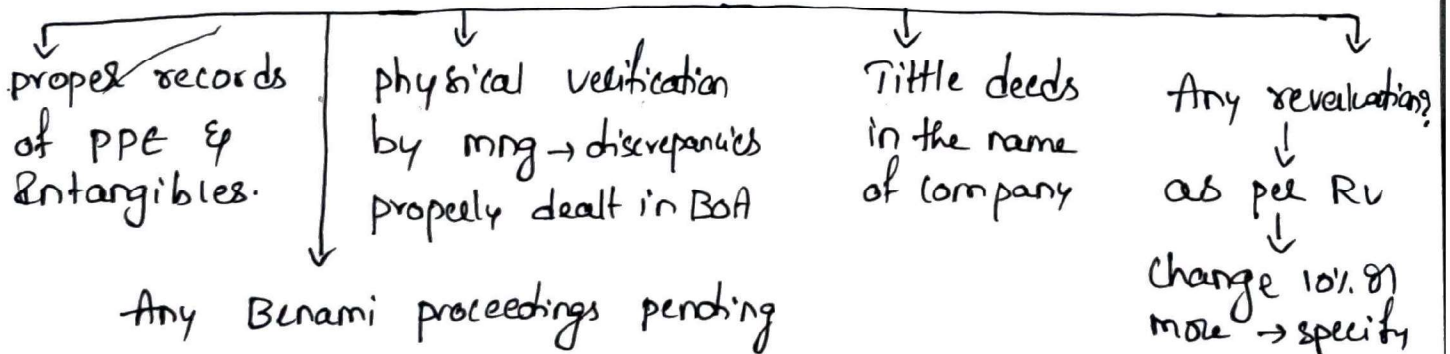 proper records
of PPE &
Intangibles.
physical verification
by mng → discrepancies
properly dealt in BoA
Tittle deeds
in the name
of company
Any revaluation?
↓
as per RV
↓
Change 10% or
more → specify
Any Benami proceedings pending